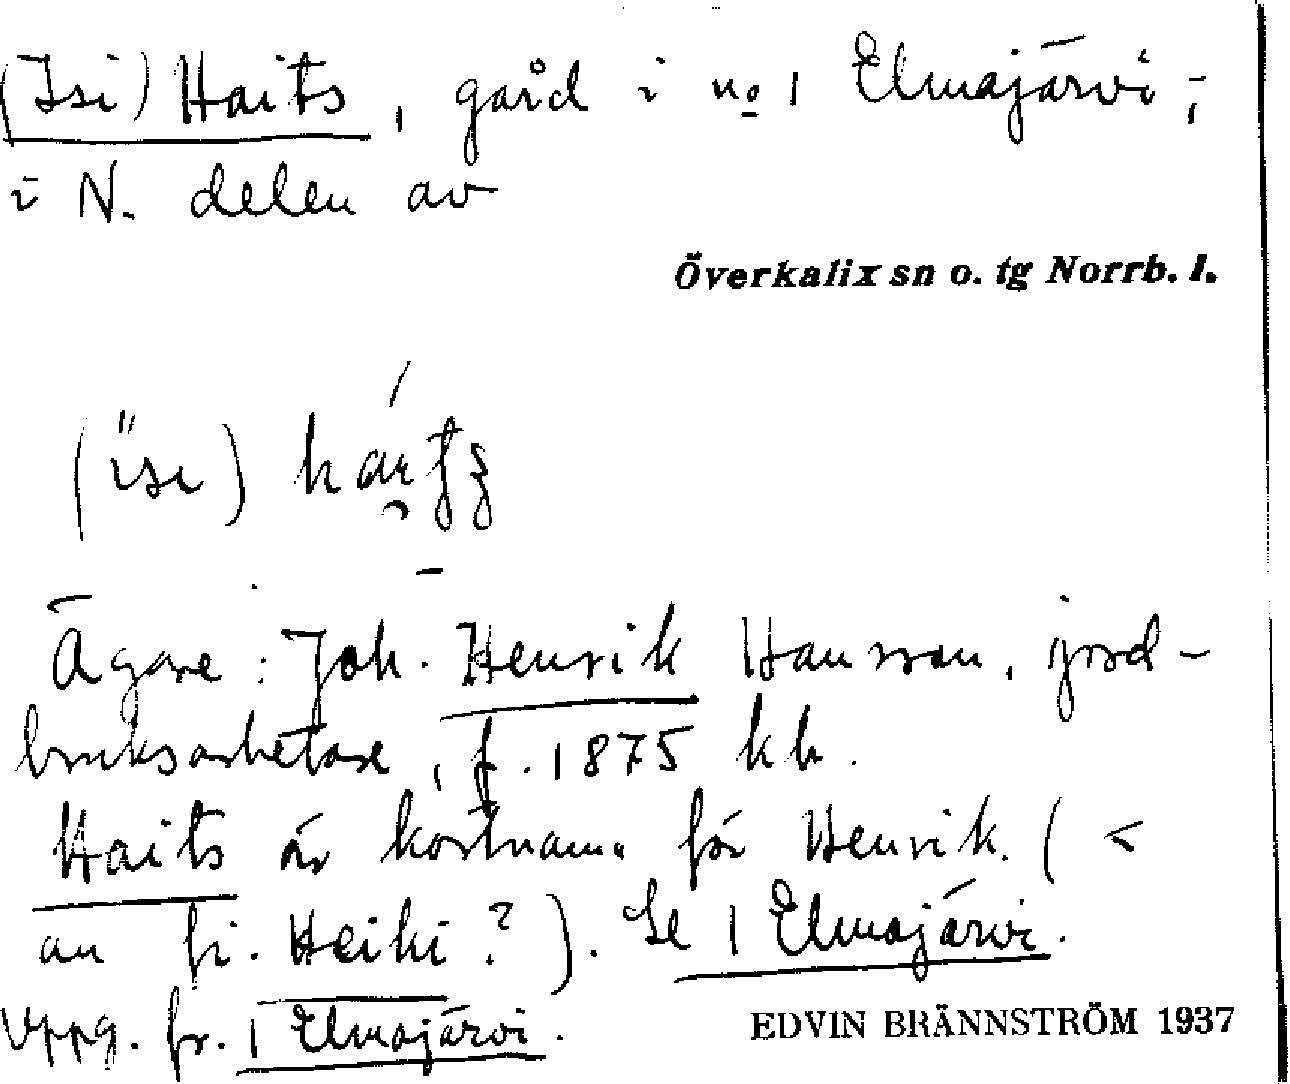 (Isi) Haits, gård i no 1 Elmajärvi,
i N. delen av
Överkalix sn o. tg Norrb. l.
(ïsi)
Ägare: Joh. Henrik Hansson, jord-
bruksarbetare, f. 1875 kh.
Haits är kortnamn för Henrik. (<
an fi. Heiki?). Se 1 Elmajärvi.
Uppg. fr. 1 Elmajärvi.
EDVIN BRÄNNSTRÖM 1937